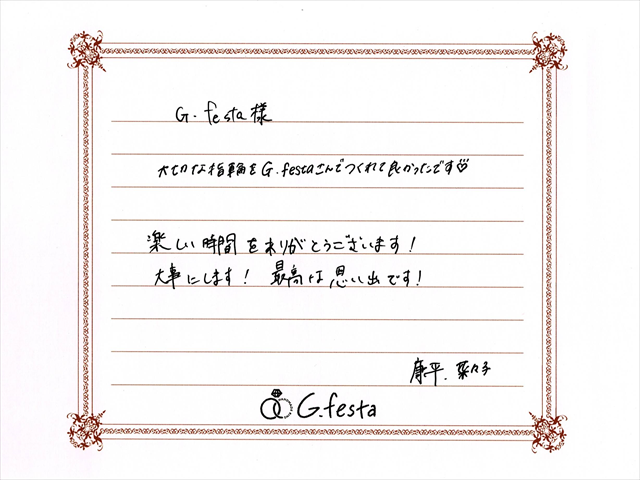 G.festa様
大切な指輪をG.festaさんでつくれて良かったです♡
楽しい時間をありがとうございます！
大事にします！ 最高な思い出です！
康平. 菜々子
G.festa